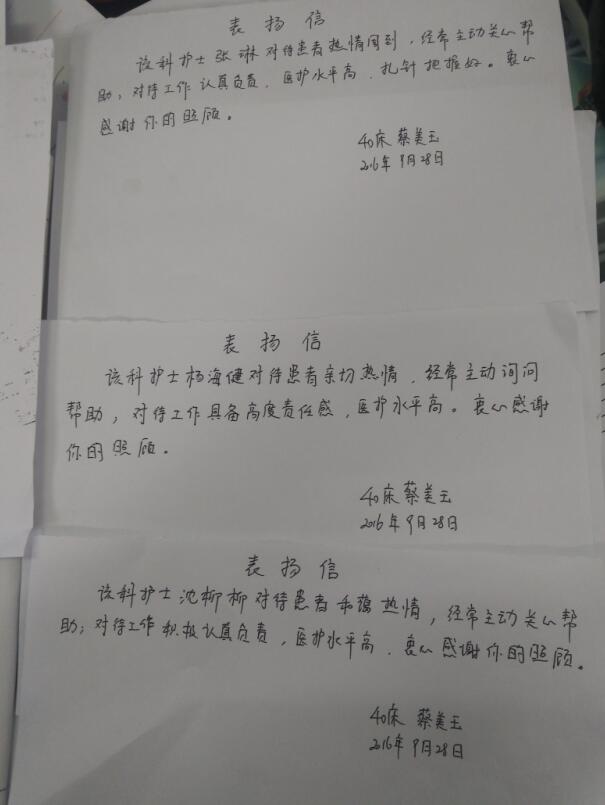 表扬信
该科护士张琳对待患者热情周到，经常主动关心帮
助，对待工作认真负责，医护水平高，扎针把握好。衷心
感谢你的照顾。
40床 蔡美玉
2016年9月28日
表扬信
该科护士杨海健对待患者亲切热情，经常主动询问
帮助，对待工作具备高度责任感，医护水平高。衷心感谢
你的照顾。
40床 蔡美玉
2016年9月28日
表扬信
该科护士沈柳柳对待患者和蔼热情，经常主动关心帮
助；对待工作积极认真负责，医护水平高，衷心感谢你的照顾。
40床 蔡美玉
2016年9月28日